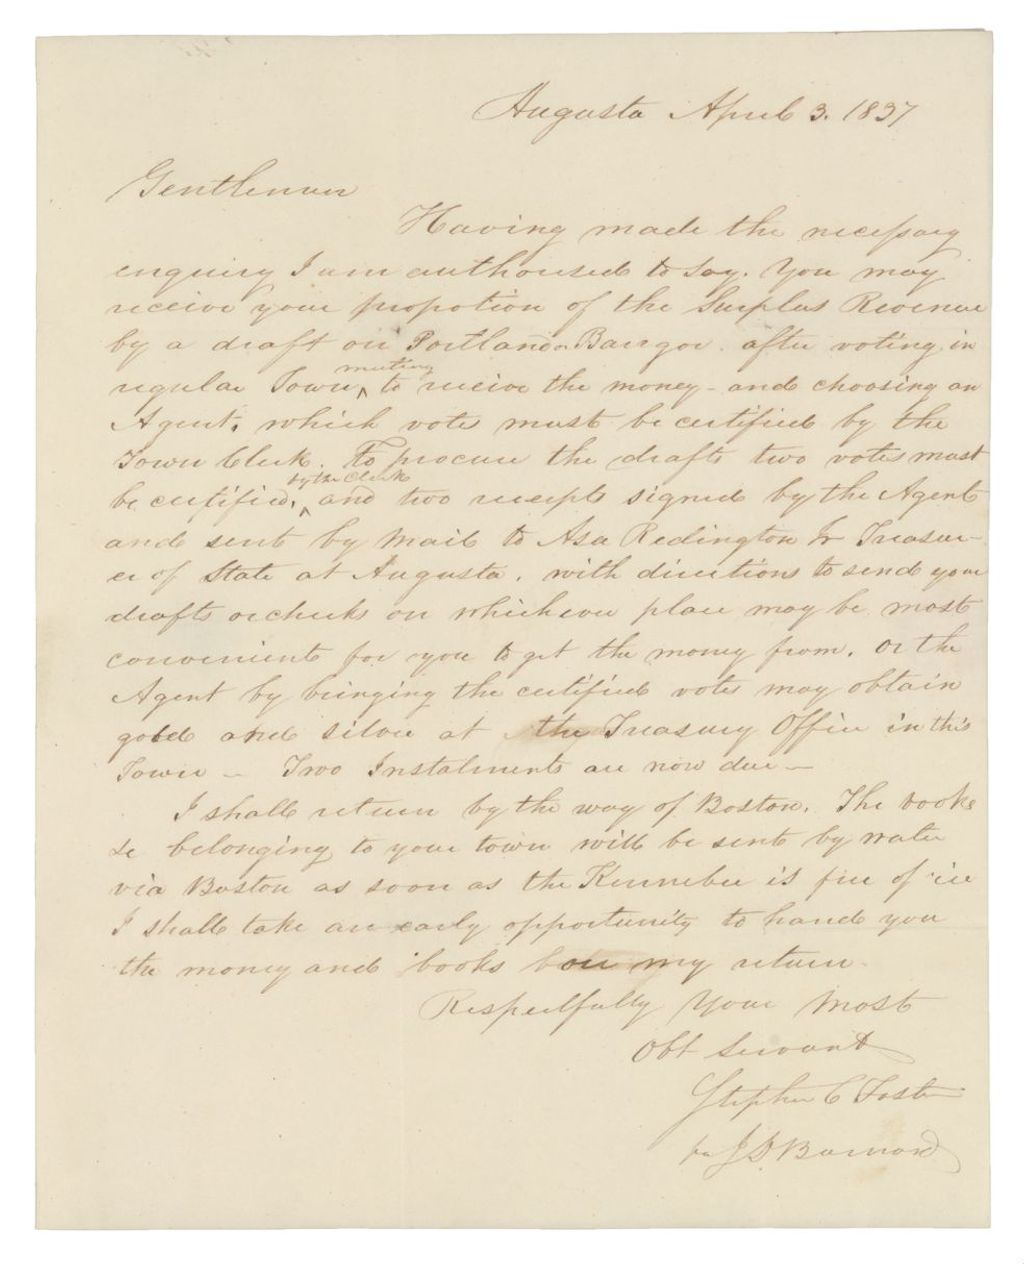 Augusta April 3. 1837
Gentlemen
Having made the necessary
enquiry I am authorised to say. You may
receive your propotion of the Surplus Revenue
by a draft on Portland or Bangor. after voting in
regular Town ^ meeting to receive the money - and choosing an
Agent; which votes must be certified by the
Town Clerk. To procure the drafts two votes must
be certified, ^ by the Clerk and two receipts signed by the Agent
and sent by Mail to Asa Redington Jr Treasur-
er of State at Augusta. with directions to send your
drafts or checks on whichever place may be most
convenient for you to get the money from. Or the
Agent by bringing the certified votes may obtain
gold and silver at the Treasury Office in this
Town - Two Instalments are now due -
I shall return by the way of Boston. The books
&c belonging to your town will be sent by water
via Boston as soon as the Kennebec is free of ice
I shall take an early opportunity to hand you
the money and books on my return.
Respectfully Your Most
Obt Servant
Stephen C Foster
per J D Barnard